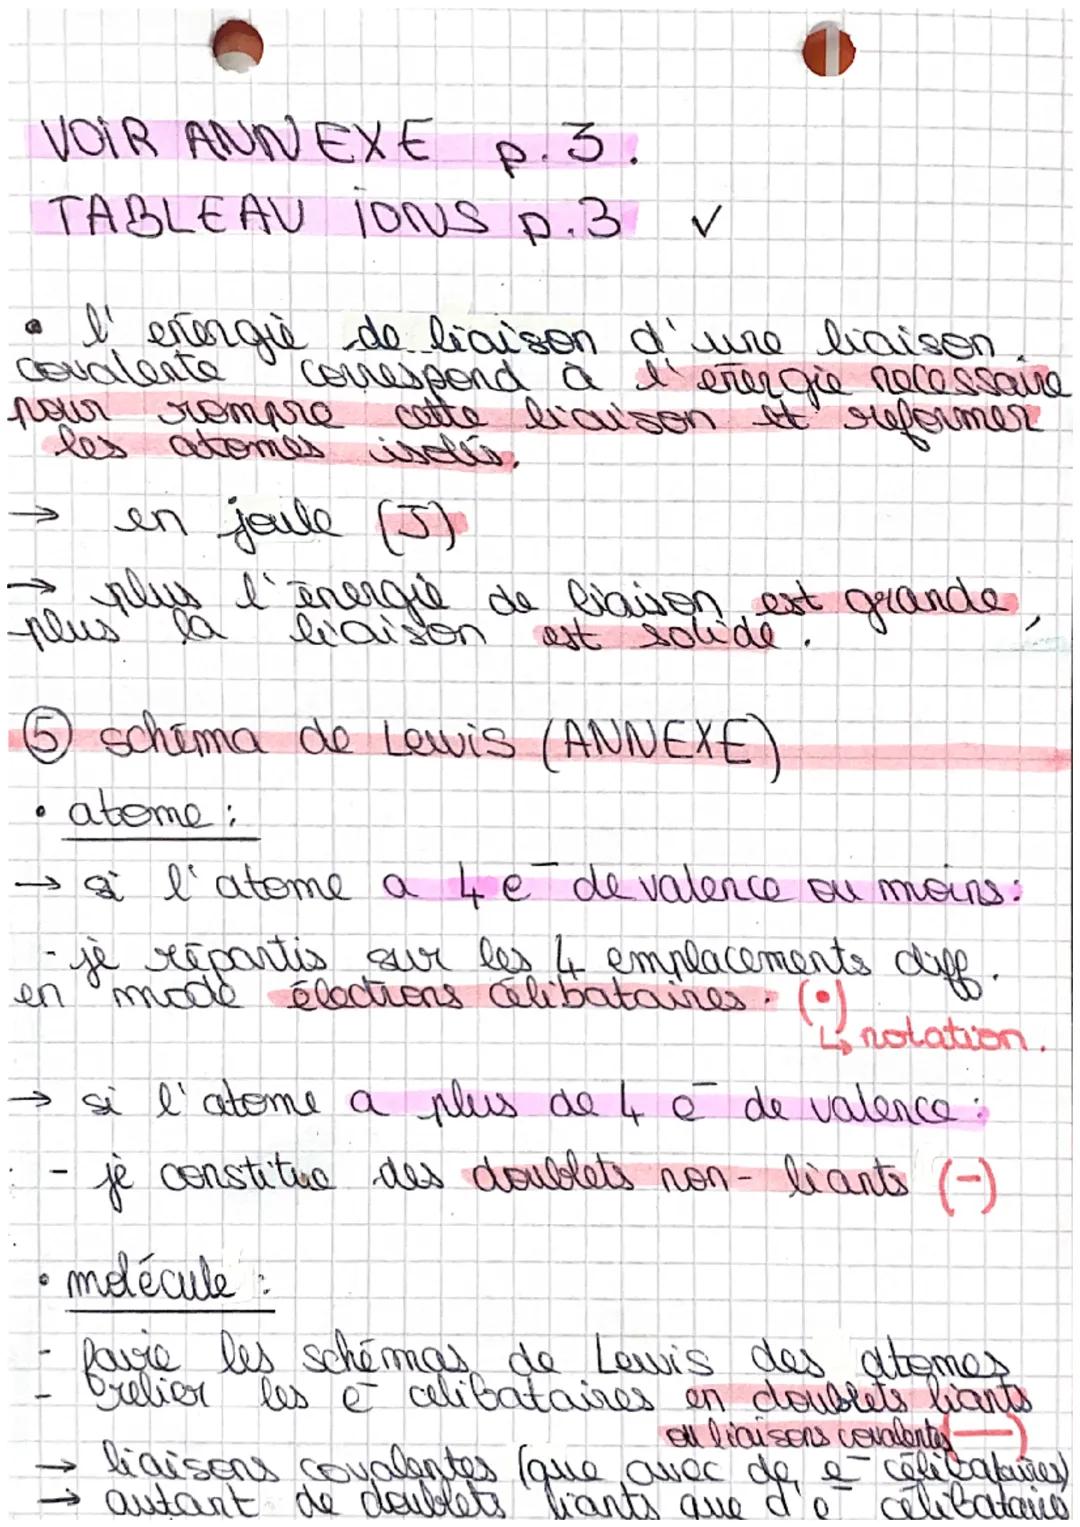 VOIR ANNEXE p.3.
TABLEAU IONS p.3 ✓
• l'énergie de liaison d'une liaison
covalente correspond à l'énergie nécessaire
pour rompre cette liaison et reformer
les atomes isolés.
→ en joule (J)
→ plus l'énergie de liaison est grande,
plus la liaison est solide.
⑤ schéma de Lewis (ANNEXE)
• atome :
→ si l'atome a 4 e⁻ de valence ou moins :
- je répartis sur les 4 emplacements diff.
en mode électrons célibataires. (•)
↳ notation.
→ si l'atome a plus de 4 e⁻ de valence :
- je constitue des doublets non-liants (-)
• molécule :
- faire les schémas de Lewis des atomes
- relier les e⁻ célibataires en doublets liants
ou liaisons covalentes (—)
→ liaisons covalentes (que avec de e⁻ célibataires)
→ autant de doublets liants que d'e⁻ célibataire